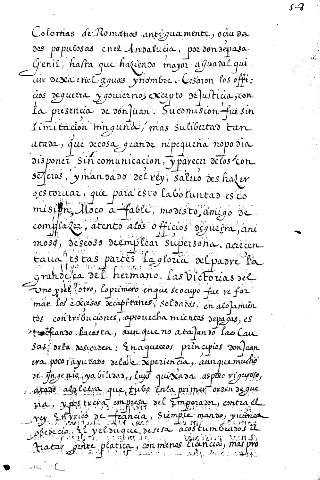 54
Colonias de Romanos antiguamente, o çiuda
des populosas en el Andaluçia, por donde pasa
Genil, hasta que haziendo mayor a guadalqui
uir dexa en el aguas y nombre. Cesaron los offi
cios de guerra y gouierno, excepto de Justicia, con
la presencia de don Juan. Su comision fue sin
limitacion ninguna, mas su libertad tan
atada, que de cosa grande ni pequeña podia
disponer sin comunicacion, y parecer de los con
sejeros, y mandado del rey, saluo deshazer
o estoruar, que para esto la voluntad es co
mision. Moço afable, modesto, amigo de
complazer, atento a los officios de guerra, ani
moso, deseoso de emplear su persona. acrecen
taua estas partes la gloria del padre, la
grandeza del hermano. las victorias del
uno y del otro, lo primero en que se ocupo fue refor
mar los excesos de capitanes, soldados, en alojamien
tos contribuciones, aprouechamientos de pagas, es
la costa, aun que no atajando las cau
sas de la desorden. En aquestos principios don Juan
era poco ayudado de la experiencia, aunque mucho
de ingenio, y abilidad, luys quixada aspero riguroso,
atado a la letra que tubo la primer orden de gue
rra, y postrera empresa del Emperador, contra el
rey Enrico de francia, siempre mando,
obedecio. El y el duque de sesa acostumbrados a
tratar gente platica, con menos liçencia, mas pro